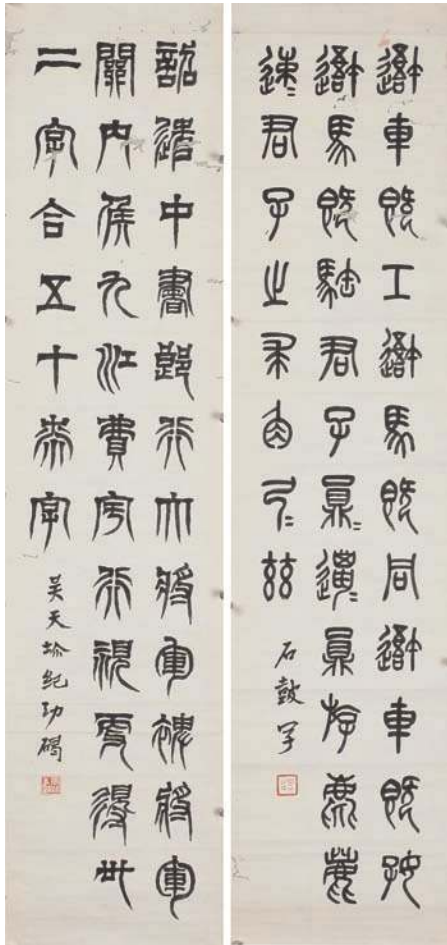 吾車既工吾馬既同吾車既好
吾馬既駘君子員=邋=員斿麀鹿
速=君子之求卣弓=兹
石鼓字
詔遣中書郎行大將軍裨將軍
關內侯九江費宇行視更得卅
二字合五十柒字
吳天璽紀功碣